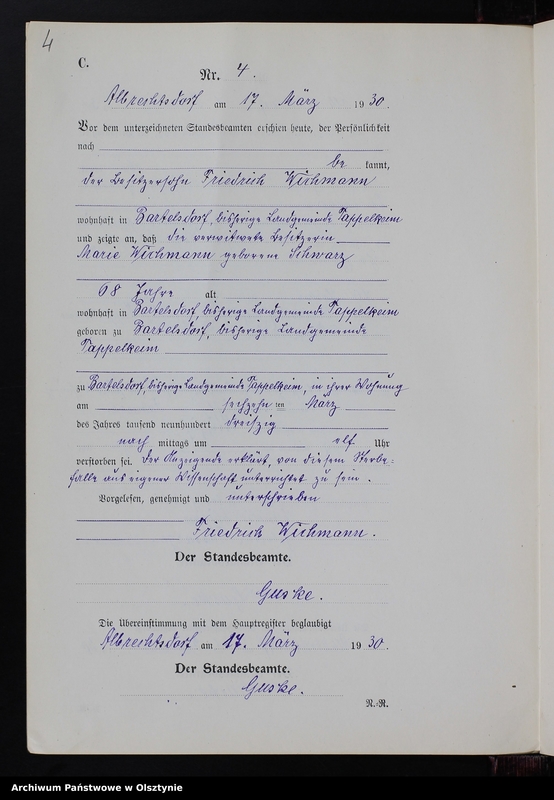 4
C.
Nr. 4.
Albrechtsdorf am 17. März 1930.
Vor dem unterzeichneten Standesbeamten erschien heute, der Persönlichkeit
nach
be kannt,
der Besitzersohn Friedrich Wichmann
wohnhaft in Bartelsdorf, bisherige Landgemeinde Tappelkeim
und zeigte an, daß die verwitwete Besitzerin
Marie Wichmann geborene Schwarz
68 Jahre alt
wohnhaft in Bartelsdorf, bisherige Landgemeinde Tappelkeim
geboren zu Bartelsdorf, bisherige Landgemeinde
Tappelkeim
zu Bartelsdorf, bisherige Landgemeinde Tappelkeim, in ihrer Wohnung
am sechzehn ten März
des Jahres tausend neunhundert dreiszig
nach mittags um elf Uhr
verstorben sei. Der Anzeigende erklärt, von diesem Sterbe-
falle aus eigener Wissenschaft unterrichtet zu sein.
Vorgelesen, genehmigt und unterschrieben
Friedrich Wichmann.
Der Standesbeamte.
Guske.
Die Übereinstimmung mit dem Hauptregister beglaubigt
Albrechtsdorf am 17. März 1930.
Der Standesbeamte.
Guske.
N.-R.
Archiwum Państwowe w Olsztynie